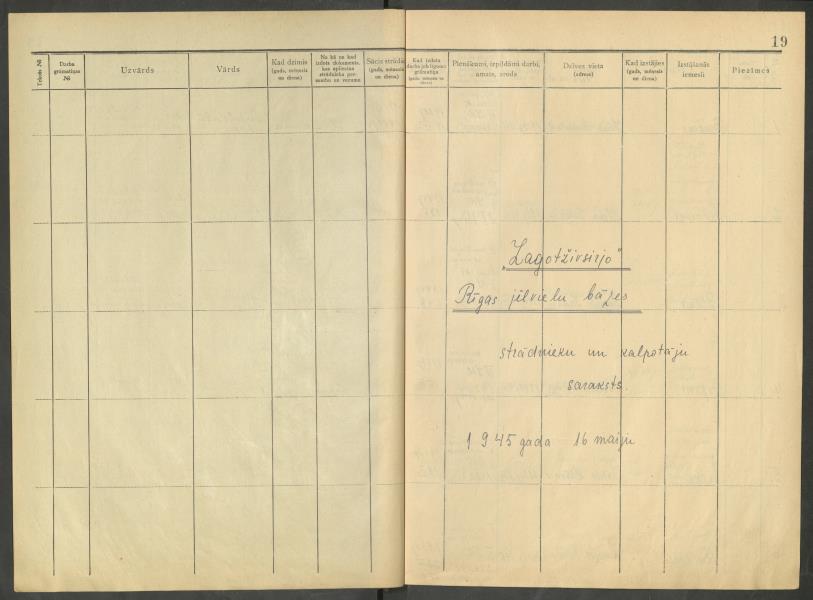 19
Tekošs №
Darba grāmatiņas №
Uzvārds
Vārds
Kad dzimis (gads, mēnesis un diena)
No kā un kad izdots dokuments, kas apliecina strādnieka personību un vecumu
Sācis strādāt (gads, mēnesis un diena)
Kad izdota darba jeb līguma grāmatiņa (gads, mēnesis un diena)
Pienākumi, izpildāmi darbi, amats, arods
Dzīves vieta (adrese)
Kad izstājies (gads, mēnesis un diena)
Izstāšanās iemesli
Piezīmes
„Zagotživsirjo"
Rīgas jēlvielu bāzes
strādnieku un kalpotāju
saraksts.
1945 gada 16 maiju